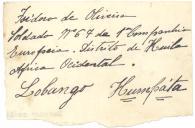 Isidoro de Oliveira
Soldado Nº 67 da 1ª Companhia
Europeia. Distrito de Huila
Africa Ocidental.
Lubango Humpata